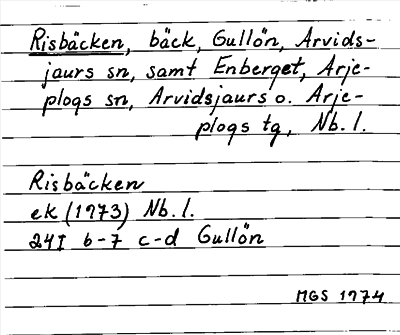 Risbäcken, bäck, Gullön, Arvids-
jaurs sn, samt Enberget, Arje-
plogs sn, Arvidsjaurs o. Arje-
plogs tg, Nb. l.
Risbäcken
ek (1973) Nb. l.
24I b-7 c-d Gullön
MGS 1974